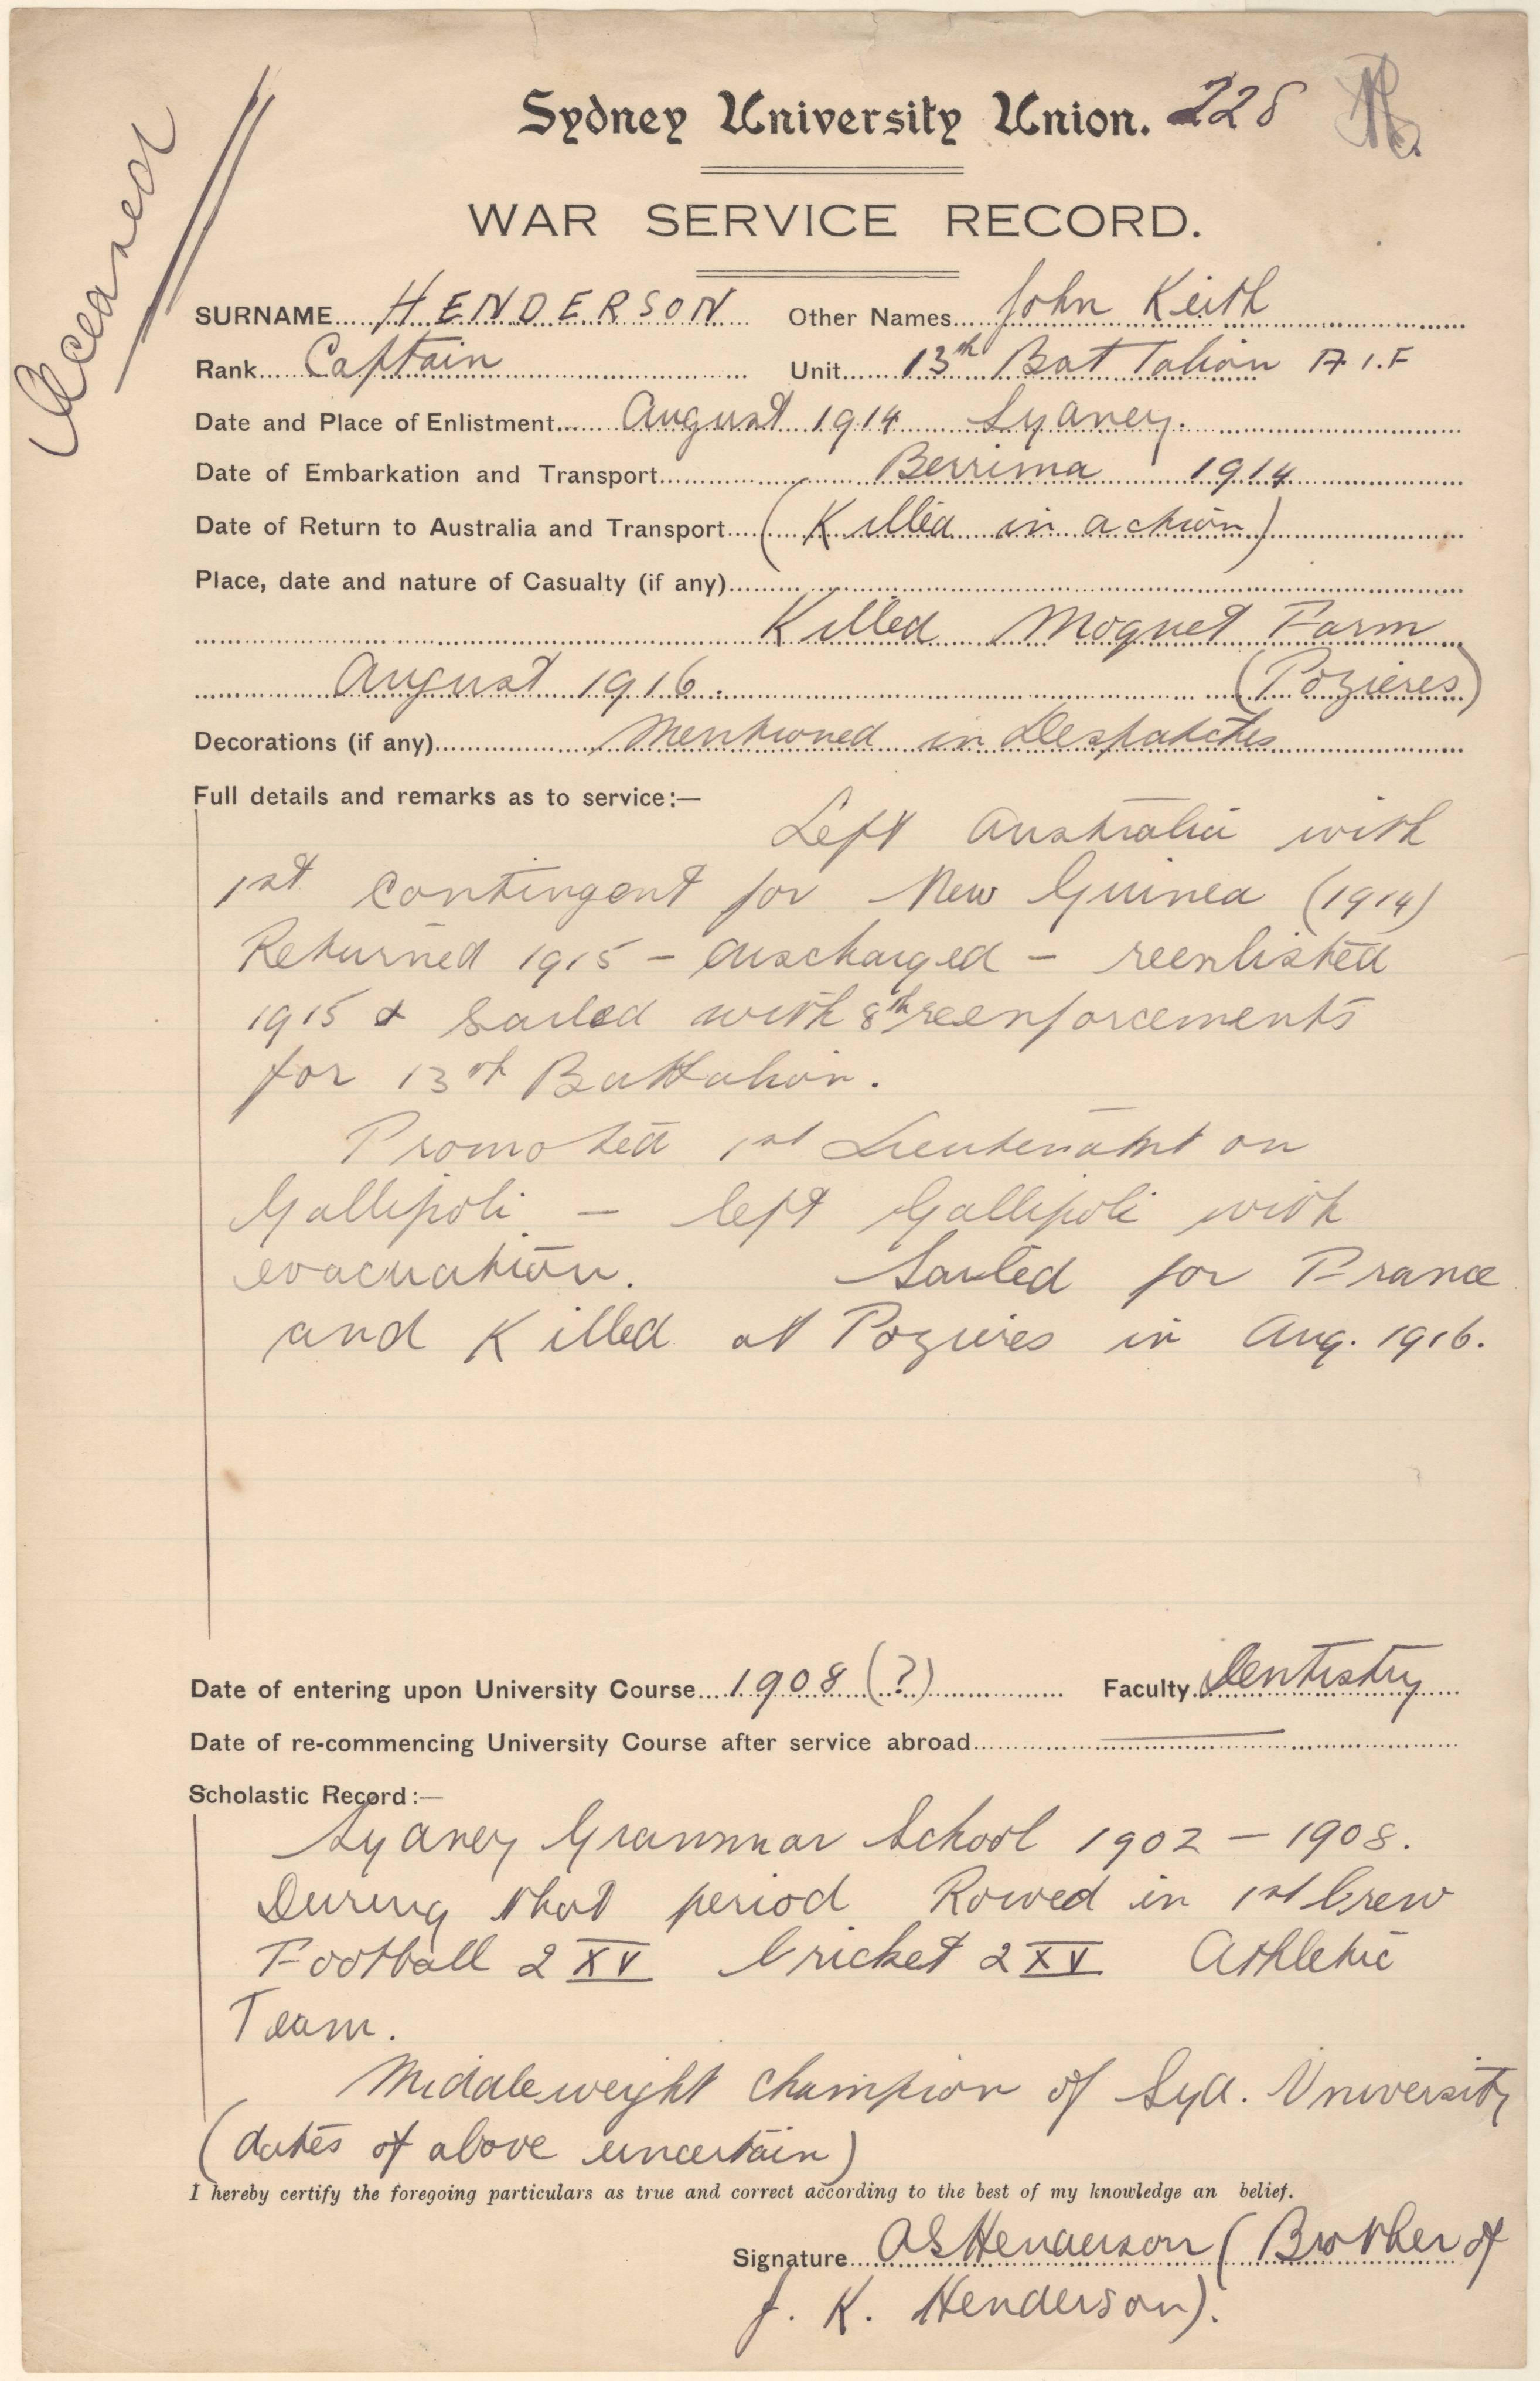 Deceased
Sydney University Union. 228
WAR SERVICE RECORD.
SURNAME HENDERSON Other Names John Keith
Rank Captain Unit 13th Battalion A.I.F
Date and Place of Enlistment August 1914 Sydney.
Date of Embarkation and Transport Berrima 1914
Date of Return to Australia and Transport (Killed in action)
Place, date and nature of Casualty (if any)
Killed Moquet Farm
August 1916. (Pozieres)
Decorations (if any) Mentioned in Despatches
Full details and remarks as to service:—
Left Australia with
1st contingent for New Guinea (1914)
Returned 1915 – discharged – reenlisted
1915 & sailed with 8th reenforcements
for 13th Battalion.
Promoted 1st Lieutenant on
Gallipoli – left Gallipoli with
evacuation. Sailed for France
and Killed at Pozieres in Aug. 1916.
Date of entering upon University Course 1908 (?) Faculty Dentistry
Date of re-commencing University Course after service abroad
Scholastic Record:—
Sydney Grammar School 1902 – 1908.
During that period Rowed in 1st Crew
Football 2 XV Cricket 2 XV Athletic
Team.
Middleweight Champion of Syd. University
(dates of above uncertain)
I hereby certify the foregoing particulars as true and correct according to the best of my knowledge an belief.
Signature A S Henderson (Brother of
J. K. Henderson).